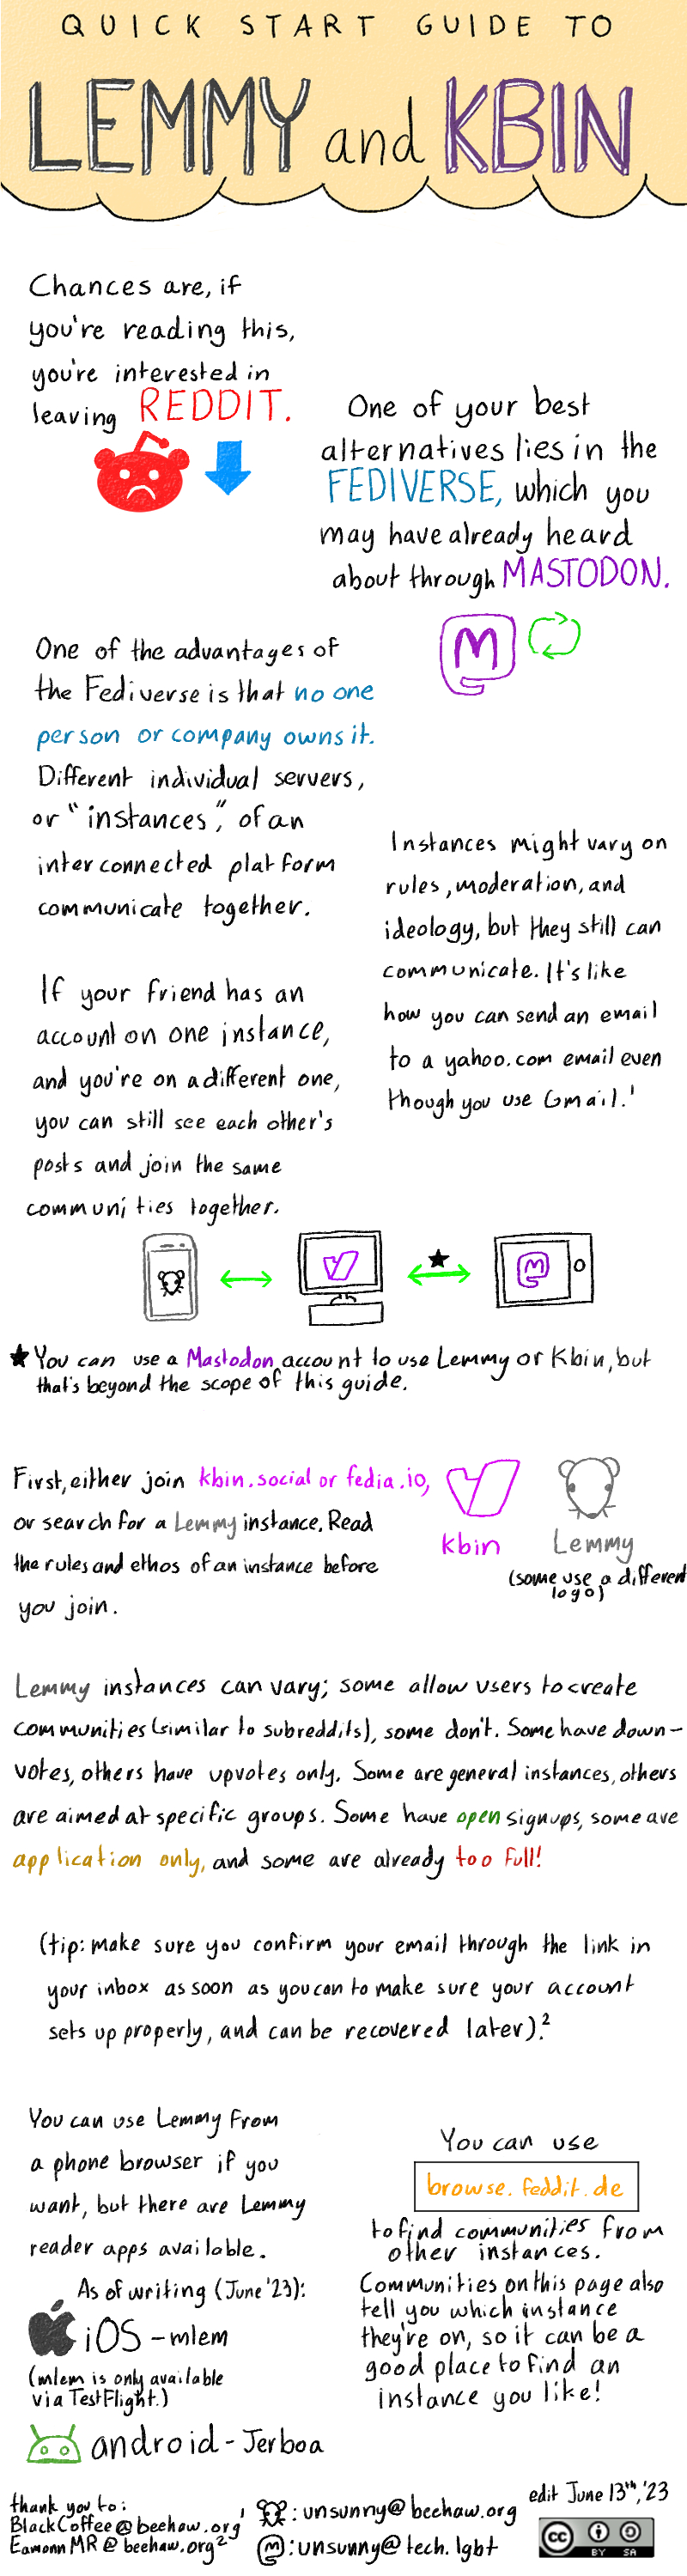 QUICK START GUIDE TO
LEMMY and KBIN
Chances are, if
you're reading this,
you're interested in
leaving REDDIT.
One of your best
alternatives lies in the
FEDIVERSE, which you
may have already heard
about through MASTODON.
One of the advantages of
the Fediverse is that no one
person or company owns it.
Different individual servers,
or "instances", of an
interconnected platform
communicate together.
Instances might vary on
rules, moderation, and
ideology, but they still can
communicate. It's like
how you can send an email
to a yahoo.com email even
though you use Gmail.¹
If your friend has an
account on one instance,
and you're on a different one,
you can still see each other's
posts and join the same
communities together.
★ You can use a Mastodon account to use Lemmy or Kbin, but
that's beyond the scope of this guide.
First, either join kbin.social or fedia.io,
or search for a Lemmy instance. Read
the rules and ethos of an instance before
you join.
kbin
Lemmy
(some use a different
logo)
Lemmy instances can vary; some allow users to create
communities (similar to subreddits), some don't. Some have down-
votes, others have upvotes only. Some are general instances, others
are aimed at specific groups. Some have open signups, some are
application only, and some are already too full!
(tip: make sure you confirm your email through the link in
your inbox as soon as you can to make sure your account
sets up properly, and can be recovered later).²
You can use Lemmy from
a phone browser if you
want, but there are Lemmy
reader apps available.
As of writing (June '23):
iOS - mlem
(mlem is only available
via TestFlight.)
android - Jerboa
You can use
browse.feddit.de
to find communities from
other instances.
Communities on this page also
tell you which instance
they're on, so it can be a
good place to find an
instance you like!
thank you to:
BlackCoffee@beehaw.org¹
EamonnMR@beehaw.org²
: unsunny@beehaw.org
: unsunny@tech.lgbt
edit June 13th, '23
cc BY SA